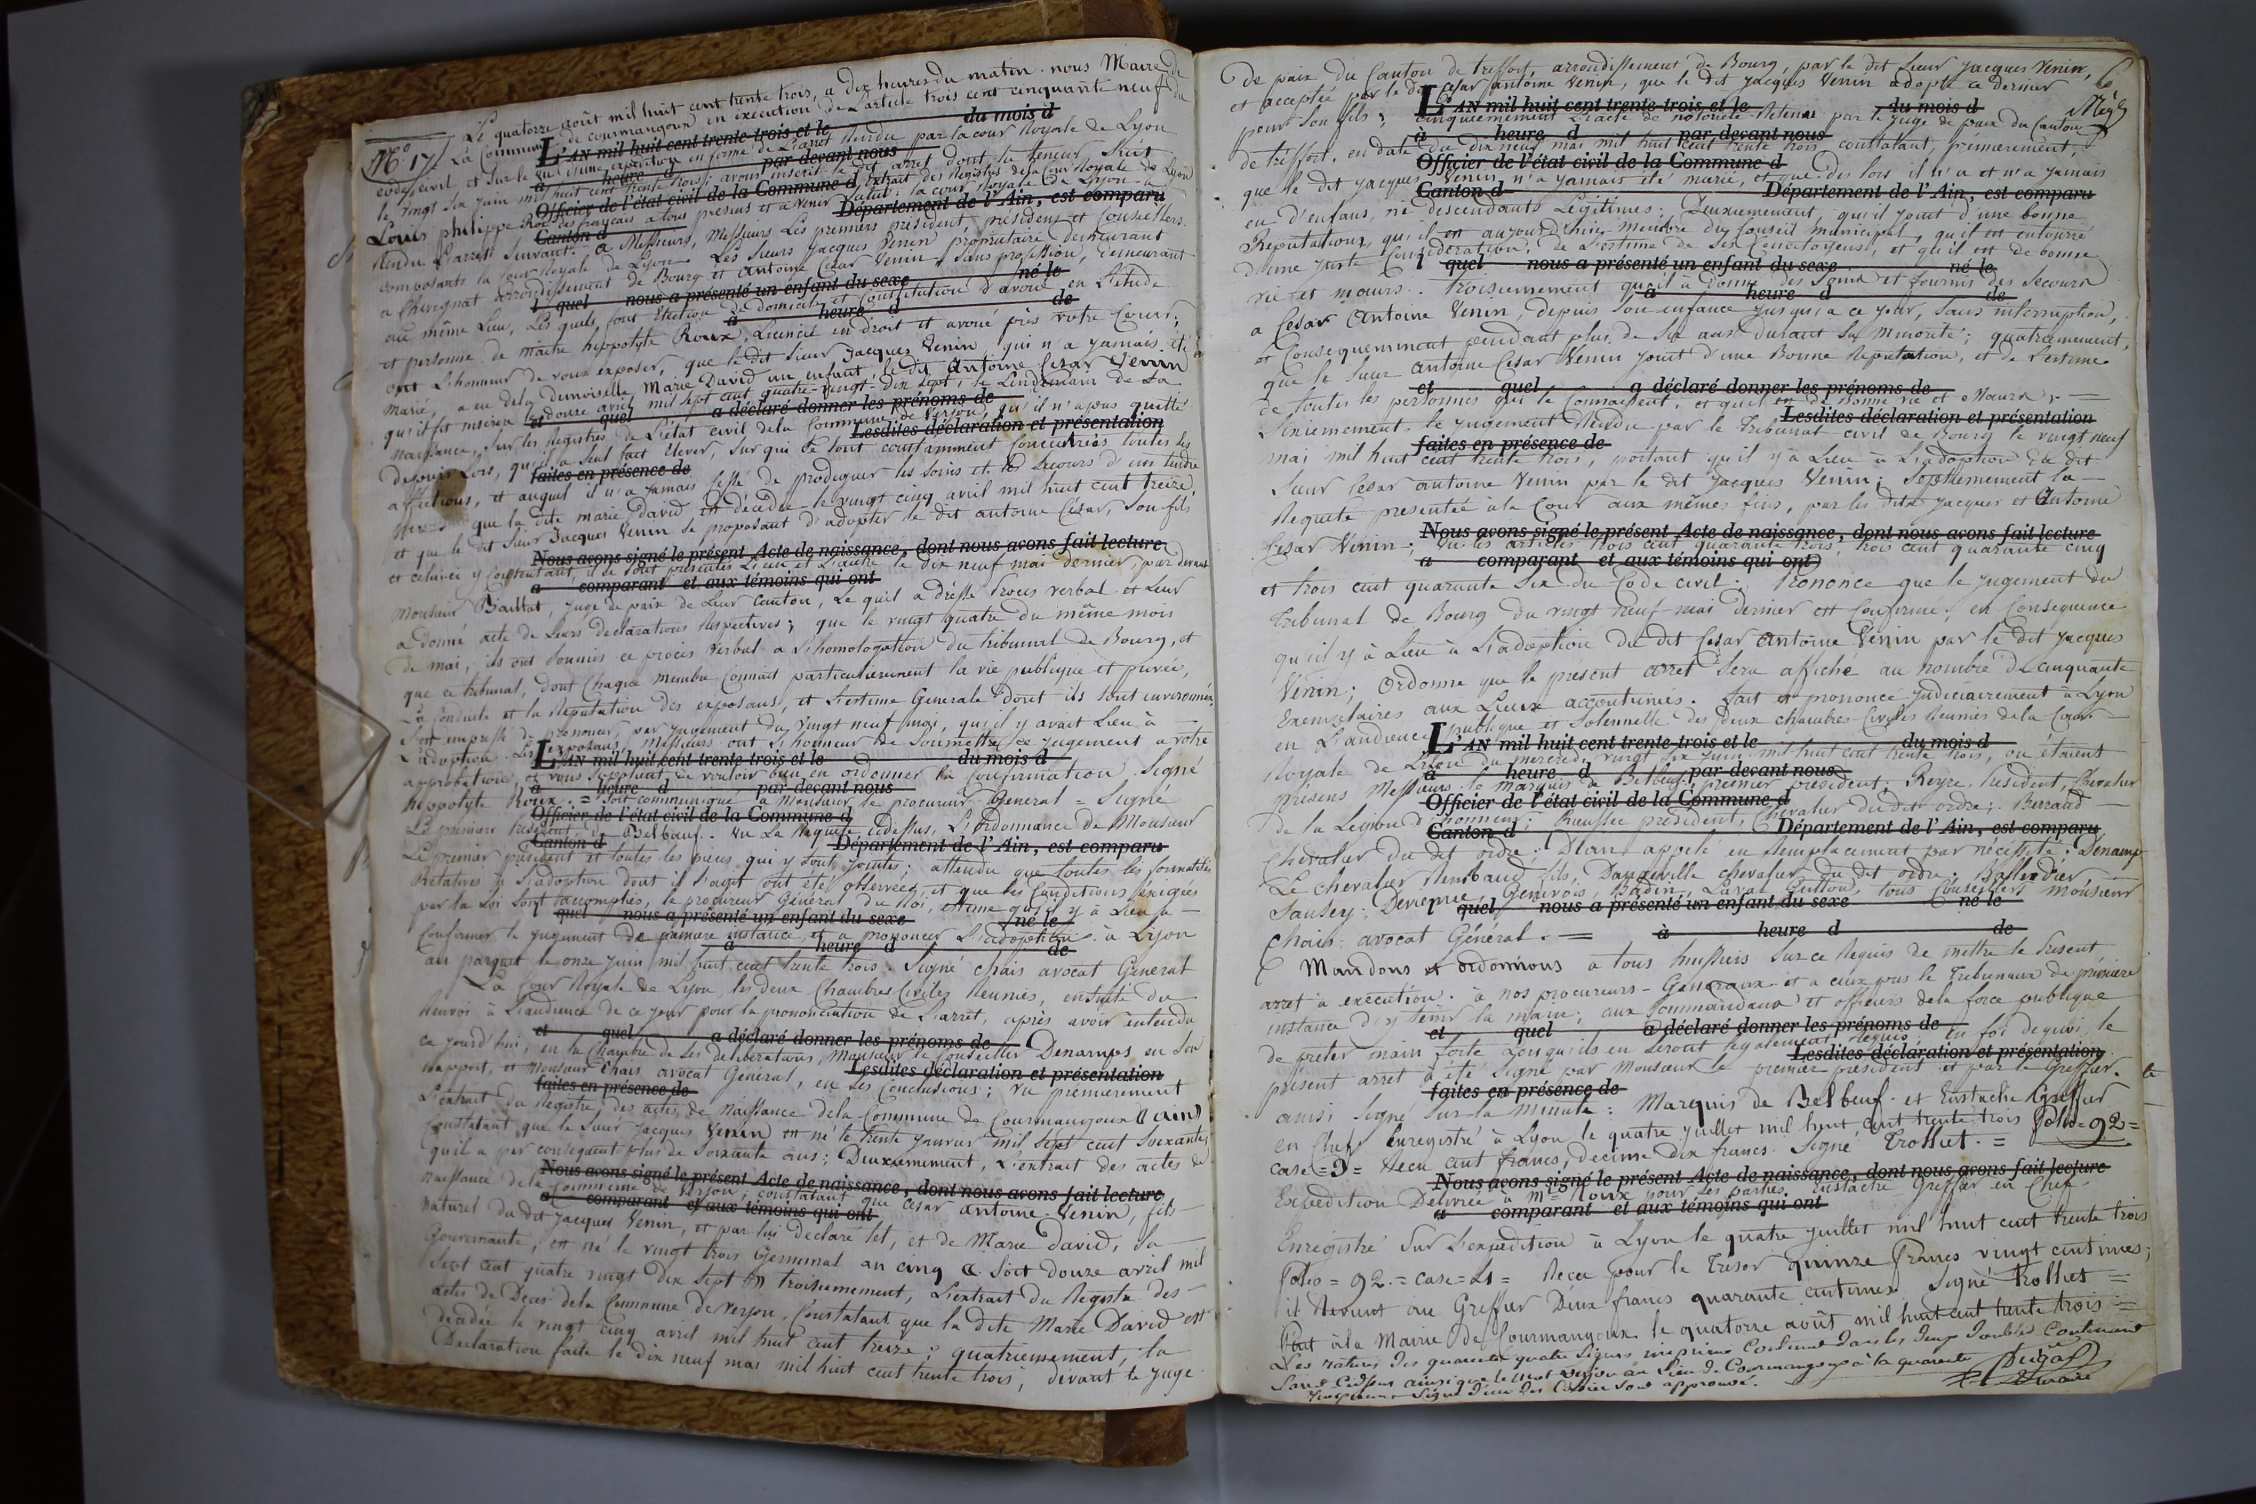 N.º 17
Le quatorze août mil huit cent trente trois, a dix heures du matin. nous Maire de
La Commune de courmangoux en execution de L'article trois cent cinquante neuf du
L'AN mil huit cent trente-trois et le du mois d
code civil et sur le vu d'une expedition en forme de L'arret Rendu par la cour Royale de Lyon
à heure d par devant nous
le vingt six juin mil huit cent trente trois; avons inscrit le dit arret dont la teneur suit
Officier de l'état civil de la Commune d Extrait des Registres de la Cour Royale de Lyon
Louis philippe Roi des français a tous presens et a venir Salut. la cour Royale de Lyon a
Canton d Département de l'Ain, est comparu
Rendu L'arret suivant. a Messieurs, Messieurs Les premiers president, président et Conseillers
composants la Cour Royale de Lyon. Les Sieurs Jacques Venin proprietaire demeurant
a Chevignat arrondissement de Bourg et Antoine César Venin, sans profession, demeurant
quel nous a présenté un enfant du sexe né le
au même Lieu, Les quels, font Election de domicile et Constitution d'avoué en L'étude
à heure d de
et personne de maitre hippolyte Roux, Licencié en droit et avoué près votre Cour;
ont L'honneur de vous exposer, que le dit Sieur Jacques Venin qui n'a jamais été
marié, a eu de la demoiselle Marie David un enfant, le dit Antoine Cezar Venin
qu'il fit inscrire le douze avril mil sept cent quatre-vingt-dix sept, le Lendemain de sa
et quel a déclaré donner les prénoms de
naissance, sur les registres de L'état civil de la Commune de Verjon, qu'il n'a pas quitté
Lesdites déclaration et présentation
depuis Lors, qu'il a seul fait élever, sur qui se sont constamment concentrées toutes les
faites en présence de
affections, et auquel il n'a jamais cessé de prodiguer les soins et les Secours d'un tendre
que la dite marie David est décédée le vingt cinq avril mil huit cent treize,
et que le dit sieur Jacques Venin se proposant d'adopter le dit antoine César, son fils
Nous avons signé le présent Acte de naissance, dont nous avons fait lecture
et celui-ci y consentant, ils se sont presentés L'un et L'autre le dix neuf mai dernier par devant
a comparant et aux témoins qui ont
Monsieur Baillat, juge de paix de Leur Canton, Le quel a dressé Procès verbal et Leur
a donné acte de Leurs declarations Respectives; que le vingt quatre du même mois
de mai, ils ont soumis ce procès verbal a L'homologation du tribunal de Bourg, et
que ce tribunal, dont Chaque membre Connait particulierement la vie publique et privée,
La Conduite et la Reputation des exposans, et L'estime Generale dont ils sont environnés,
s'est empressé de prononcer, par jugement du vingt neuf mai, qu'il y avait Lieu à
L'adoption. Les exposans, Messieurs ont L'honneur de Soumettre ce jugement a votre
L'AN mil huit cent trente-trois et le du mois d
approbation, et vous supplient de vouloir bien en ordonner la Confirmation. Signé
à heure d par devant nous
hippolyte Roux. = soit communiqué a Monsieur le procureur General = Signé
Officier de l'état civil de la Commune d
Le premier President de Belbeuf. Vu La Requête cidessus, L'ordonnance de Monsieur
Canton d Département de l'Ain, est comparu
Le premier president et toutes les pieces qui y sont jointes; attendu que toutes les formalités
Relatives à L'adoption dont il s'agit ont été observées, et que les Conditions exigées
par la Loi sont accomplies, le procureur Général du Roi, estime qu'il y à Lieu a
quel nous a présenté un enfant du sexe né le
Confirmer le jugement de premiere instance, et a prononcer L'adoption. à Lyon
à heure d de
au parquet le onze juin mil huit cent trente trois. Signé chais avocat General
La Cour Royale de Lyon, les deux Chambres Civiles Reunies, ensuite du
Renvoi à L'audience de ce jour pour la prononciation de L'arret, après avoir entendu
et quel a déclaré donner les prénoms de
ce jourd'hui, en la Chambre de ses déliberations, Monsieur le Conseiller Denamps en son
Lesdites déclaration et présentation
rapport, et Monsieur Chais avocat Général, en ses Conclusions; vu premierement
faites en présence de
L'extrait du Registre, des actes, de Naissance de la Commune de Courmangoux (Ain)
constatant, que le Sieur Jacques Venin est né le trente janvier mil sept cent soixante,
qu'il a par conséquent plus de soixante ans; Deuxiemement, L'extrait des actes de
Nous avons signé le présent Acte de naissance, dont nous avons fait lecture
naissance de la Commune de Verjon, constatant que César antoine Venin, fils
a comparant et aux témoins qui ont
naturel du dit Jacques Venin, et par lui Declaré tel, et de Marie David, sa
Gouvernante, est né le vingt trois Germinal an cinq soit douze avril mil
sept cent quatre vingt dix sept troisiemement, L'extrait du Registre des
actes de Deces de la Commune de Verjon, Constatant que la dite Marie David est
décédée le vingt cinq avril mil huit cent treize; quatriemement, la
Declaration faite le dix neuf mai mil huit cent trente trois, devant le juge
6
de paix du Canton de treffort, arrondissement de Bourg, par le dit Sieur Jacques Venin,
et acceptée par le dit Cesar antoine Venin, que le dit Jacques Venin adopte ce dernier
L'AN mil huit cent trente-trois et le du mois d
pour son fils; cinquiemement L'acte de notoriété Retenu par le Juge de paix du Canton
à heure d par devant nous
de treffort, en date du dix neuf mai mil huit cent trente trois constatant, premierement,
Officier de l'état civil de la Commune d
que le dit Jacques Venin n'a jamais été marié, et que des lors il n'a et n'a jamais
Canton d Département de l'Ain, est comparu
eu d'enfans, ni descendants Légitimes; Deuxiemement, qu'il jouit d'une bonne
Reputation, qu'il est aujourd'hui membre du Conseil municipal, qu'il est entouré
d'une juste Consideration, de L'estime de ses Concitoyens, et qu'il est de bonne
quel nous a présenté un enfant du sexe né le
vie et mœurs. troisiemement qu'il à donné des soins et fournis des Secours
à heure d de
a Cesar Antoine Venin, depuis son enfance jusqu'a ce jour, sans interruption,
et Consequemment pendant plus de six ans durant sa Minorité; quatriemement,
que le sieur Antoine Cesar Venin jouit d'une Bonne Reputation, et de L'estime
et quel a déclaré donner les prénoms de
de toutes les personnes qui le Connaissent, et qu'il est de Bonne vie et Mœurs.
Lesdites déclaration et présentation
Sixiemement. le jugement Rendu par le Tribunal civil de Bourg le vingt neuf
faites en présence de
mai mil huit cent trente trois, portant qu'il y à Lieu à L'adoption du dit
Sieur Cesar antoine Venin par le dit Jacques Venin; Septiemement la
Requete presentée à la Cour aux mêmes fins, par les dits Jacques et Antoine
Nous avons signé le présent Acte de naissance, dont nous avons fait lecture
Cesar Venin; Vu les articles trois cent quarante trois, trois cent quarante cinq
a comparant et aux témoins qui ont
et trois cent quarante six du Code civil; Prononce que le jugement du
Tribunal de Bourg du vingt neuf mai dernier est Confirmé; en Consequence
qu'il y à Lieu à L'adoption du dit Cesar Antoine Venin par le dit Jacques
Venin; Ordonne que le présent arret sera affiché au nombre de cinquante
Exemplaires aux Lieux accoutumés. Fait et prononcé judiciairement à Lyon
en L'audience publique et Solennelle des deux chambres Civiles Reunies de la Cour
L'AN mil huit cent trente-trois et le du mois d
Royale de Lyon du mercredi vingt six juin mil huit cent trente trois, ou étaient
à heure d par devant nous
présens Messieurs le Marquis de Belbeuf premier president; Reyre President, Chevalier
Officier de l'état civil de la Commune d
de la Legion d'honneur; president, Chevalier du dit ordre;
Canton d Département de l'Ain, est comparu
Chevalier du dit ordre; appelé en Remplacement par nécessité; Denamps
Le chevalier Rambaud fils, Dangeville chevalier du dit ordre,
quel nous a présenté un enfant du sexe né le
Genevois, Badin, Laval Gutton, tous Conseillers Monsieur
à heure d de
Chais avocat Général. =
Mandons et ordonnons a tous huissiers sur ce Requis de mettre le présent
arret à execution. à nos procureurs-Généraux et a ceux prés le Tribunaux de première
instance d'y tenir la main; aux Commandans et officiers de la force publique
et quel a déclaré donner les prénoms de
de prêter main forte Lorsqu'ils en seront légalement Requis; en foi de quoi, le
Lesdites déclaration et présentation
présent arret à été signé par Monsieur le premier president et par le Greffier.
faites en présence de
ainsi Signé sur la Minute: Marquis de Belbeuf et Eustache Greffier
en Chef Enregistré à Lyon le quatre juillet mil huit cent trente trois folio = 92 =
case = 9 = Reçu cent francs, decime dix francs. Signé Trolliet. =
Nous avons signé le présent Acte de naissance, dont nous avons fait lecture
Expedition Delivrée à Me Roux pour ses parties. Eustache Greffier en Chef
a comparant et aux témoins qui ont
Enregistré sur L'expedition à Lyon le quatre juillet mil huit cent trente trois
folio = 92. = case = = Reçu pour le Tresor quinze francs vingt centimes;
it Revenant au Greffier Deux francs quarante centimes Signé Trolliet =
Fait à la Mairie de Courmangoux le quatorze août mil huit cent trente trois =
Les ratures des quarante quatre Lignes imprimées contenues dans les deux Doubles
ainsi que le mot Verjon au Lieu de Courmangoux à la quarante
sont approuvé.